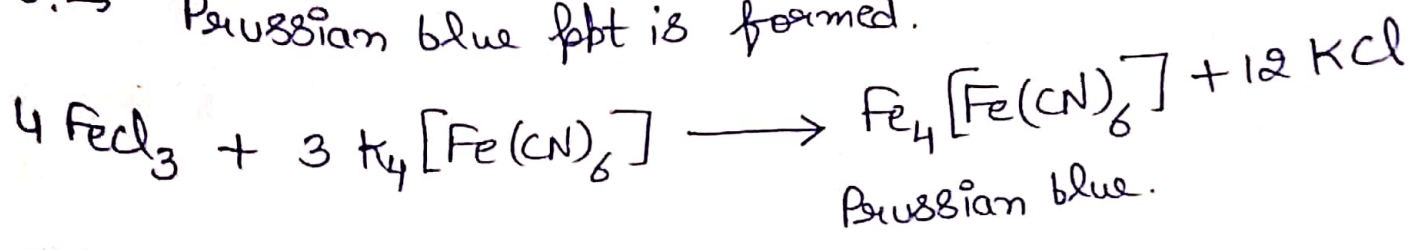 Prussian blue ppt is formed.
4 FeCl₃ + 3 K₄ [Fe(CN)₆] ⟶ Fe₄ [Fe(CN)₆] + 12 KCl
Prussian blue.